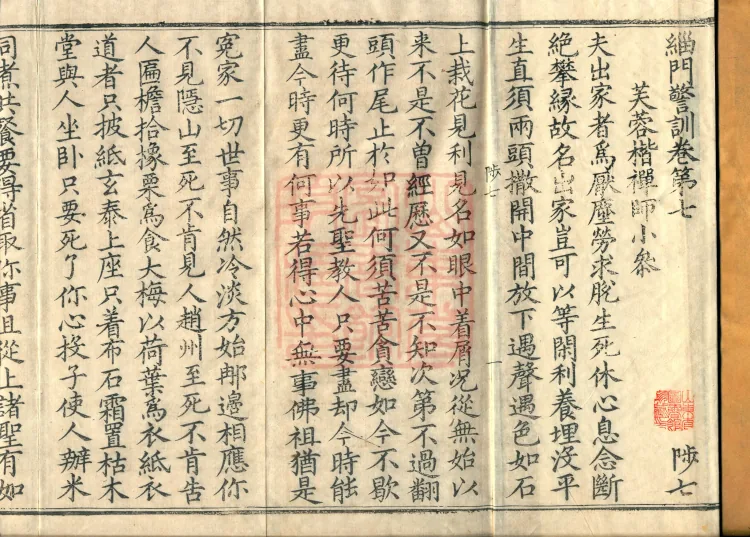 緇門警訓卷第七 陟七
芙蓉楷禪師小參
夫出家者爲厭塵勞求脫生死休心息念斷
絶攀縁故名出家豈可以等閑利養埋没平
生直須兩頭撒開中間放下遇聲遇色如石
陟七 一
上栽花見利見名如眼中着屑况從無始以
来不是不曾經歷又不是不知次第不過翻
頭作尾止於如此何須苦苦貪戀如今不歇
更待何時所以先聖教人只要盡却今時能
盡今時更有何事若得心中無事佛祖猶是
寃家一切世事自然冷淡方始那邊相應你
不見隱山至死不肯見人趙州至死不肯告
人匾檐拾橡栗爲食大梅以荷葉爲衣紙衣
道者只披紙玄泰上座只着布石霜置枯木
堂與人坐卧只要死了你心投子使人辦米
同煮共飡要得省取你事且從上諸聖有如